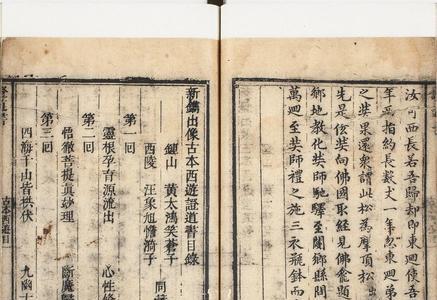 汝可西長若吾歸即東迴使吾
指約長數丈一年忽東迴弟
之奘果還衆謂此松為摩頂松
先是奘向佛國取經見佛龕題
鄉地教化奘師馳驛至閿鄉縣
萬迴至奘師禮之施三衣瓶鉢而
新鐫出像古本西遊證道書目錄
鍾山 黃太鴻笑蒼子
西陵 汪象旭憺漪子
同
第一回
靈根孕育源流出 心性修
第二回
悟徹菩提真妙理 斷魔
第三回
四海千山皆拱伏 九幽
古本西遊目一